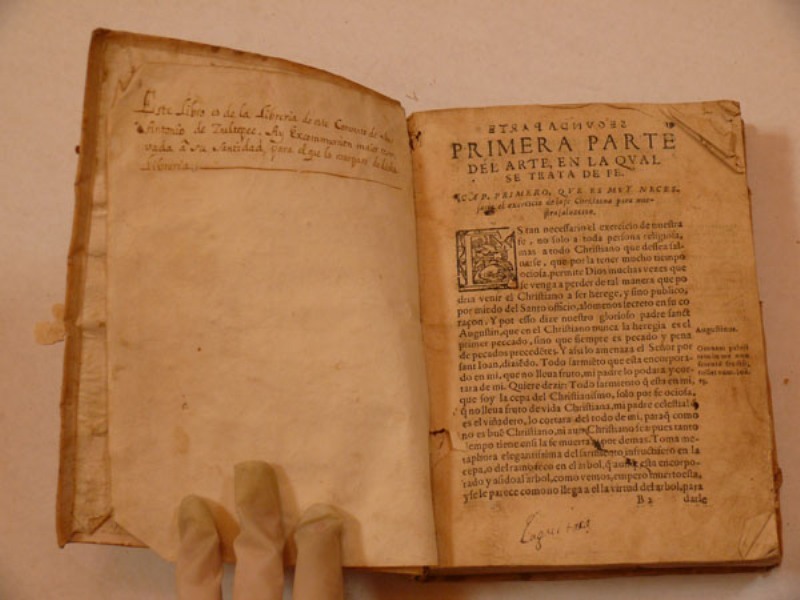 Este Libro es de la Libreria de este Convento de San
Antonio de Tultepec. Ay Excommunion maior reser
vada à su Santidad, para el que lo enagenare de dicha
Libreria.
SEGVNDA PARTE
PRIMERA PARTE
DEL ARTE, EN LA QVAL
SE TRATA DE FE.
CAP. PRIMERO, QVE ES MVY NECES-
sario el exercicio de la fe Christiana para nue-
stra saluacion.
EStan necessario el exercicio de nuestra
fe, no solo a toda persona religiosa,
mas a todo Christiano que dessea sal-
uarse, que por la tener mucho tiempo
ociosa, permite Dios muchas vezes que
se venga a perder de tal manera que po
dria venir el Christiano a ser herege, y sino publico,
por miedo del Santo officio, alomenos secreto en su co
raçon. Y por esso dize nuestro glorioso padre sanct
Augustin, que en el Christiano nunca la heregia es el
primer peccado, sino que siempre es pecado y pena
de pecados precedẽtes. Y assi lo amenaza el Señor por
sant Ioan, diziẽdo. Todo sarmiẽto que esta encorpora-
do en mi, que no lleua fruto, mi padre lo podara y cor-
tara de mi. Quiere dezir: Todo sarmiento q̃ esta en mi,
que soy la cepa del Christianismo, solo por fe ociosa,
q̃ no lleua fruto de vida Christiana, mi padre celestial q̃
es el viñadero, lo cortara del todo de mi, paraq̃ como
no es buẽ Christiano, ni aun Christiano sea: pues tanto
tiempo tiene en si la fe muerta por demas. Toma me-
taphora elegantissima del sarmiento infructifero en la
cepa, o del ramo seco en el arbol, q̃ aunq̃ esta encorpo-
rado y asido al arbol, como vemos, empero muerto esta,
y se le parece como no llega a el la virtud del arbol, para
B 2 darle
Augustinus.